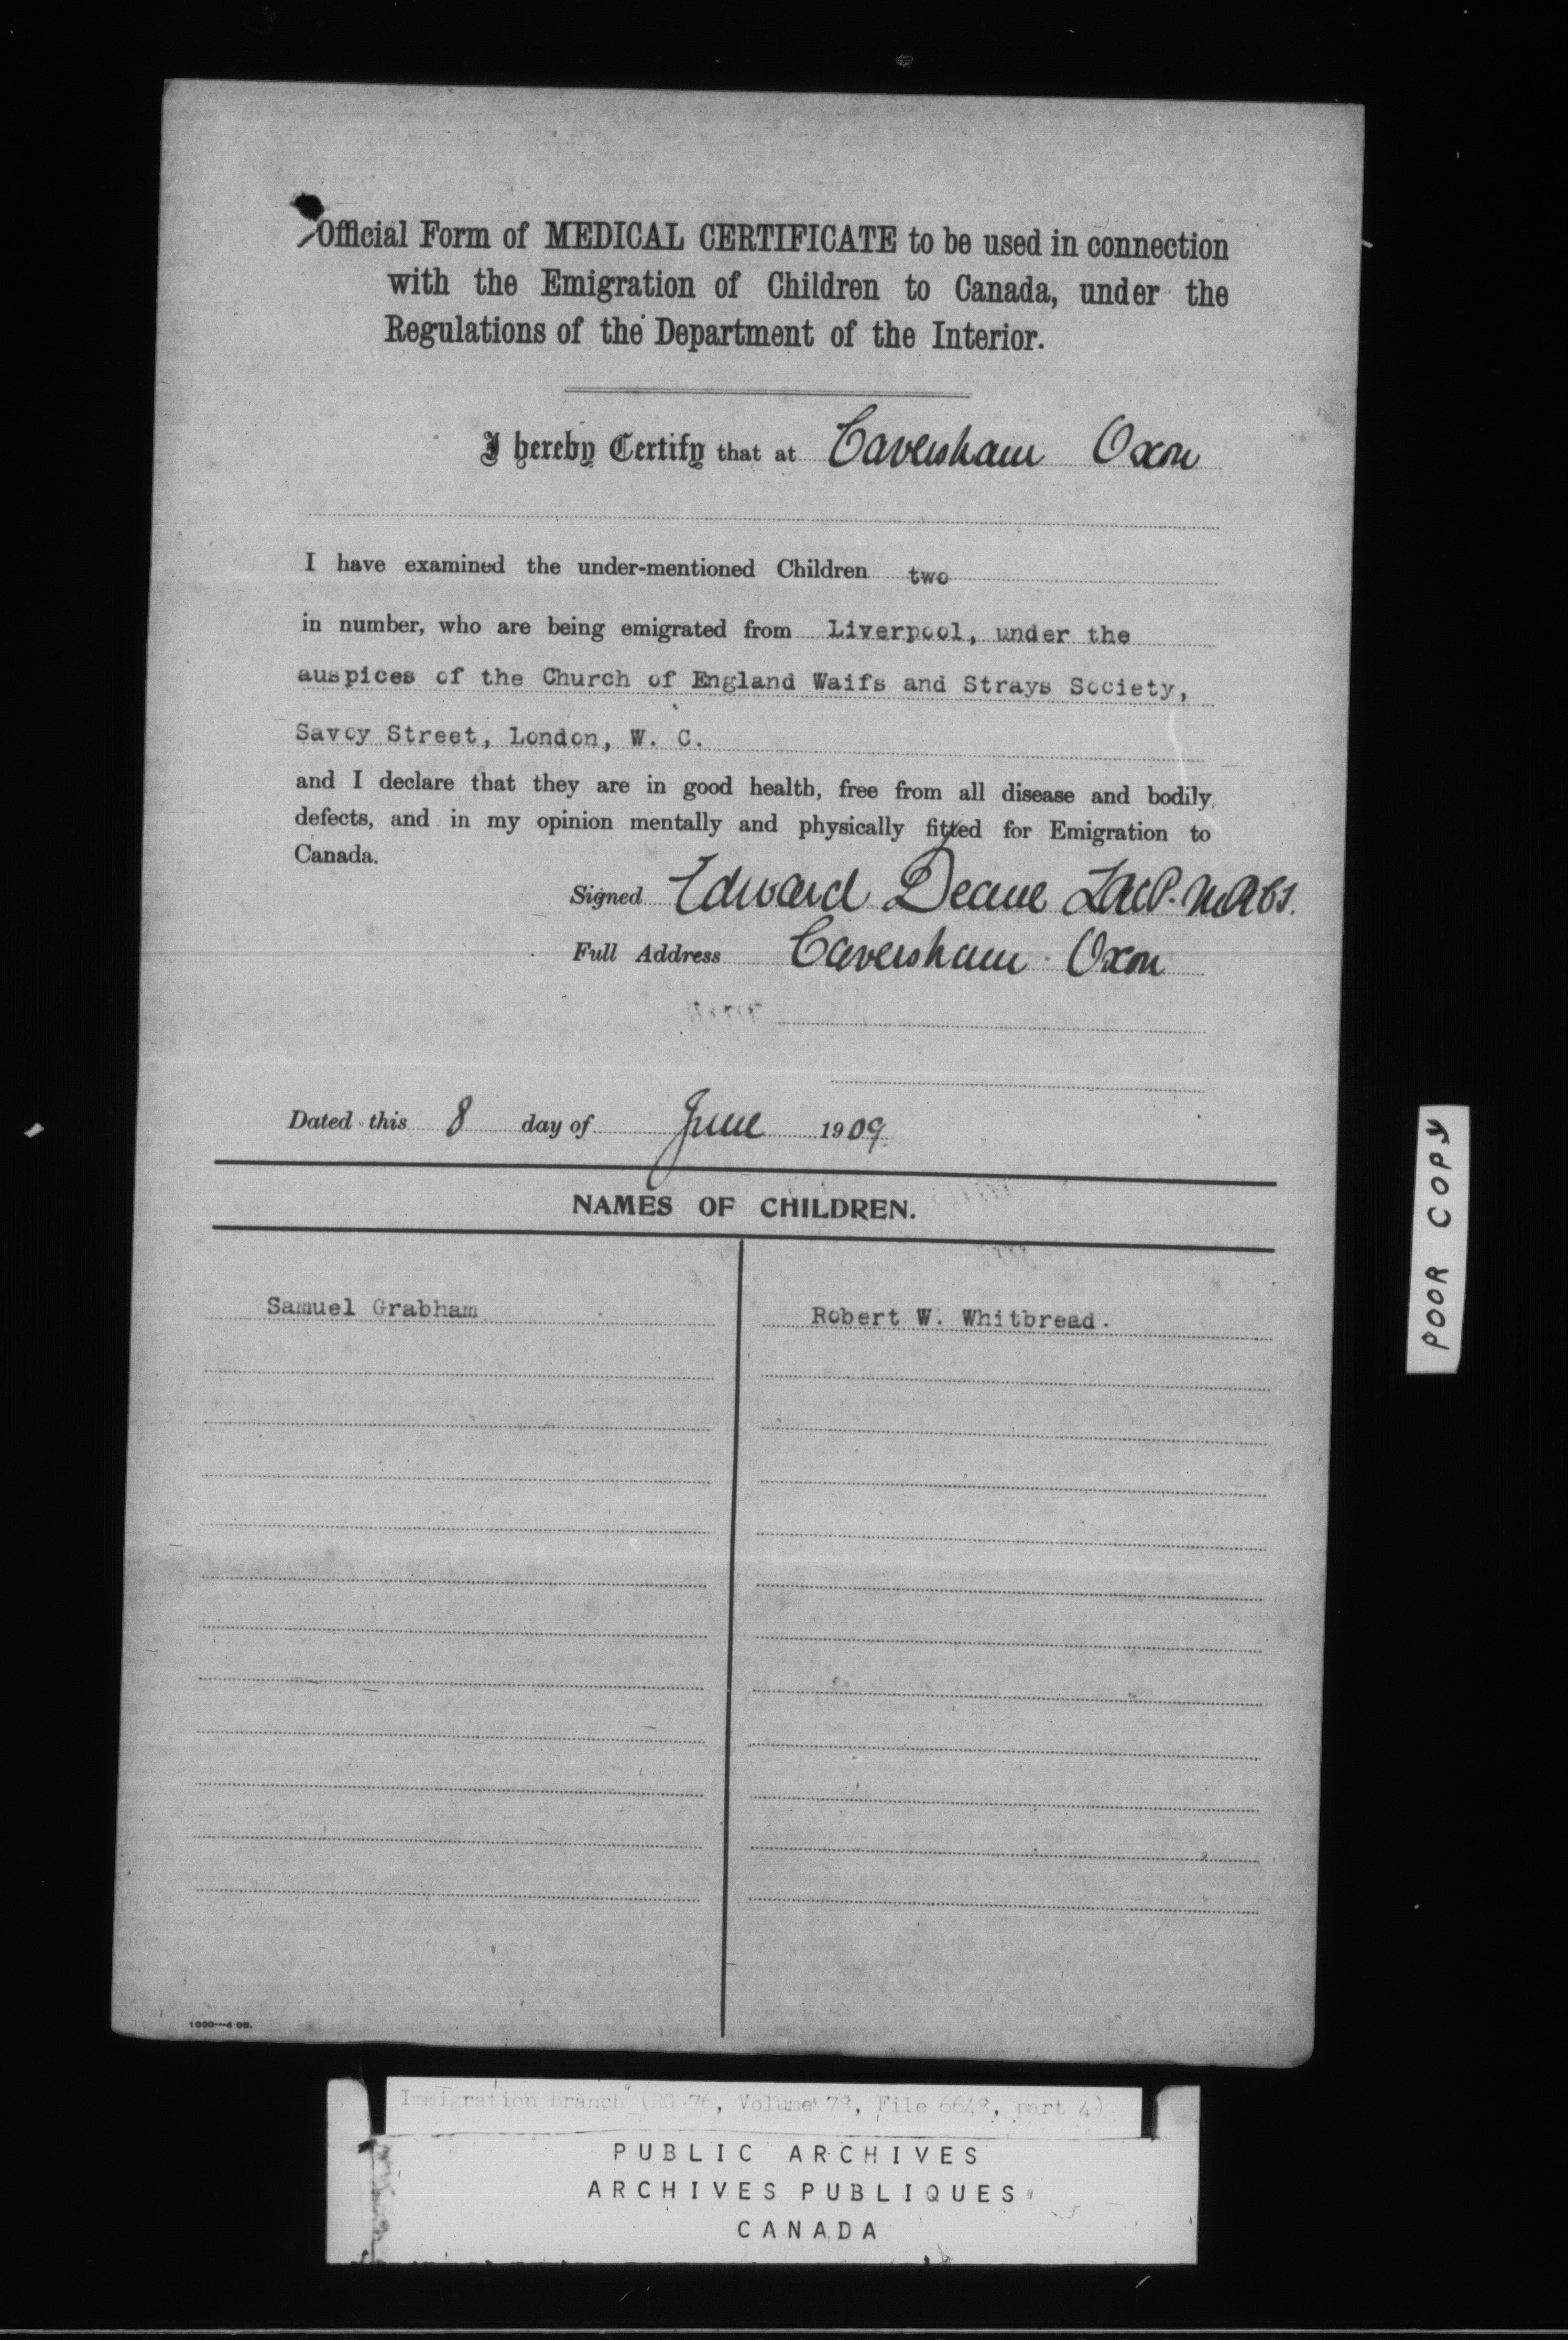 Official Form of MEDICAL CERTIFICATE to be used in connection
with the Emigration of Children to Canada, under the
Regulations of the Department of the Interior.
I hereby Certify that at Caversham Oxon
I have examined the under-mentioned Children two
in number, who are being emigrated from Liverpool, under the
auspices of the Church of England Waifs and Strays Society,
Savoy Street, London, W. C.
and I declare that they are in good health, free from all disease and bodily
defects, and in my opinion mentally and physically fitted for Emigration to
Canada.
Signed Edward Deane
Full Address Caversham Oxon
Dated this 8 day of June 1909
NAMES OF CHILDREN.
Samuel Grabham
Robert W. Whitbread.
POOR COPY
Immigration Branch (RG 76, Volume 78, File 6648, part 4)
PUBLIC ARCHIVES
ARCHIVES PUBLIQUES
CANADA